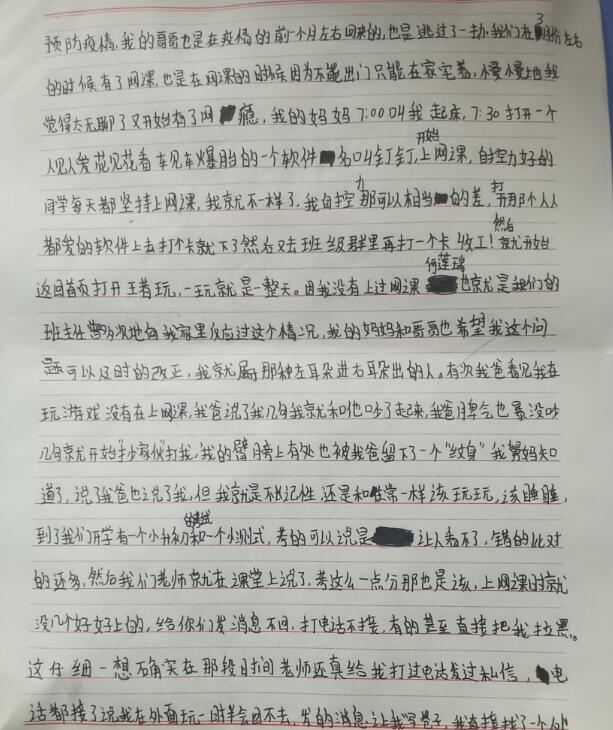 预防疫情,我的哥哥也是在疫情的前一个月左右回来的,也是逃过了一劫,我们在3月份左右
的时候有了网课,也是在网课的时候因为不能出门只能在家宅着,慢慢地我
觉得太无聊了又开始有了网瘾,我的妈妈7:00叫我起床,7:30打开一个
人见人爱花见花看车见车爆胎的一个软件名叫钉钉,开始上网课,自控力好的
同学每天都坚持上网课,我就不一样了,我自控力那可以相当的差,打开那个人人
都爱的软件上去打个卡就下了然后又去班级群里再打一个卡收工!然后就开始
返回首页打开王者玩,一玩就是一整天。因我没有上过网课何莲瑞也就是我们的
班主任多次地向我家里反应过这个情况,我的妈妈和哥哥也希望我这个问
题可以及时的改正,我就属于那种左耳朵进右耳朵出的人。有次我爸看见我在
玩游戏没有在上网课,我爸说了我几句我就和他吵了起来,我爸脾气也暴没吵
几句就开始"抄家伙"打我,我的臂膀上有处也被我爸留下了一个"纹身"我舅妈知
道了,说了我爸也说了我,但我就是不长记性,还是和往常一样该玩玩,该睡睡,
到了我们开学有一个小升初的考试和一个小测式,考的可以说是让人看不了,错的比对
的还多,然后我们老师就在课堂上说了,考这么一点分那也是该,上网课时就
没几个好好上的,给你们发消息不回,打电话不接,有的甚至直接把我拉黑。
这仔细一想确实在那段时间老师还真给我打过电话发过私信,电
话都接了说我在外面玩一时半会回不去,发的消息让我写卷子,我直接找了一个